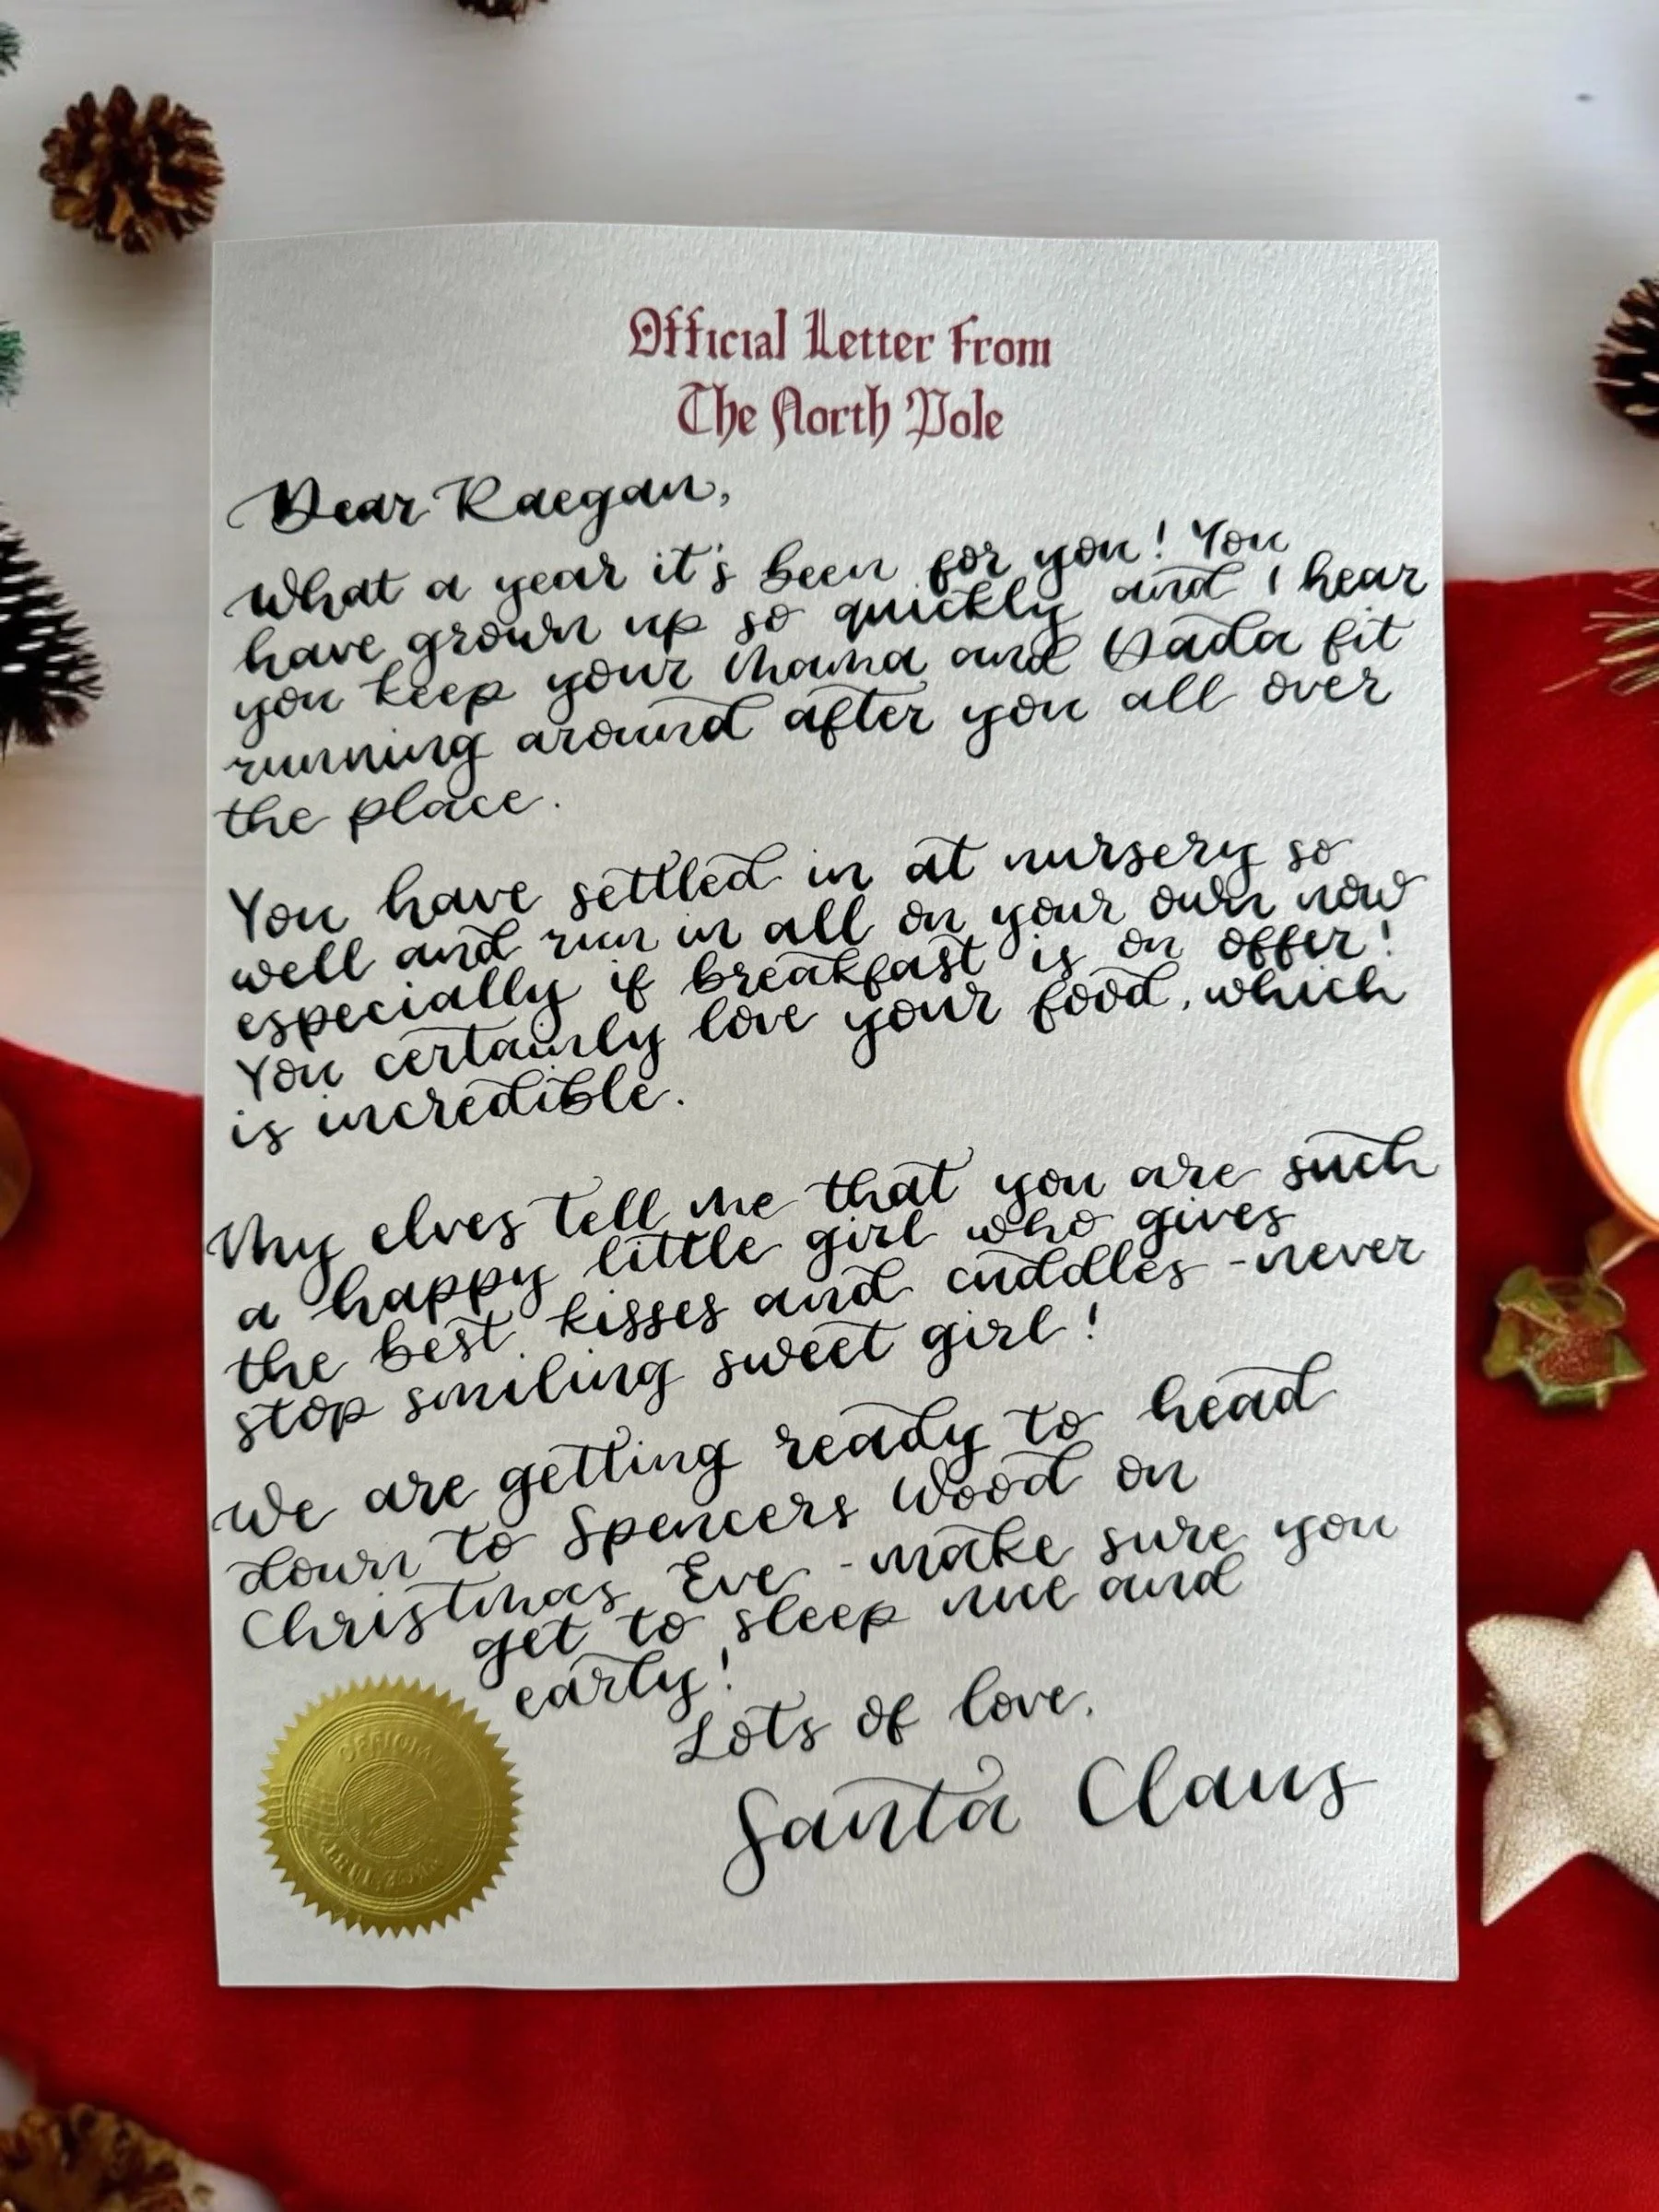 Official Letter From
The North Pole
Dear Raegan,
What a year it's been for you! You
have grown up so quickly and I hear
you keep your Mama and Dada fit
running around after you all over
the place.
You have settled in at nursery so
well and run in all on your own now
especially if breakfast is on offer!
You certainly love your food, which
is incredible.
My elves tell me that you are such
a happy little girl who gives
the best kisses and cuddles - never
stop smiling sweet girl!
We are getting ready to head
down to Spencers Wood on
Christmas Eve - make sure you
get to sleep nice and
early!
Lots of love,
Santa Claus
OFFICIAL